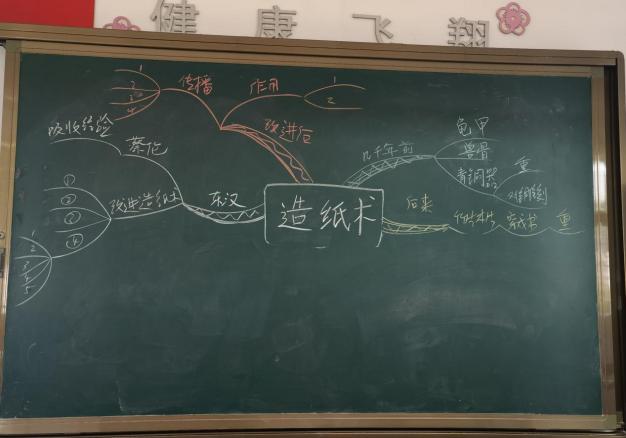 健康飞翔
造纸术
几千年前
龟甲
兽骨
青铜器
重
难雕刻
后来
竹片木片
穿成书
重
东汉
蔡伦
吸收经验
改进造纸术
①
②
③
④
1
2
3
4
5
改进后
传播
1
2
3
4
作用
1
2